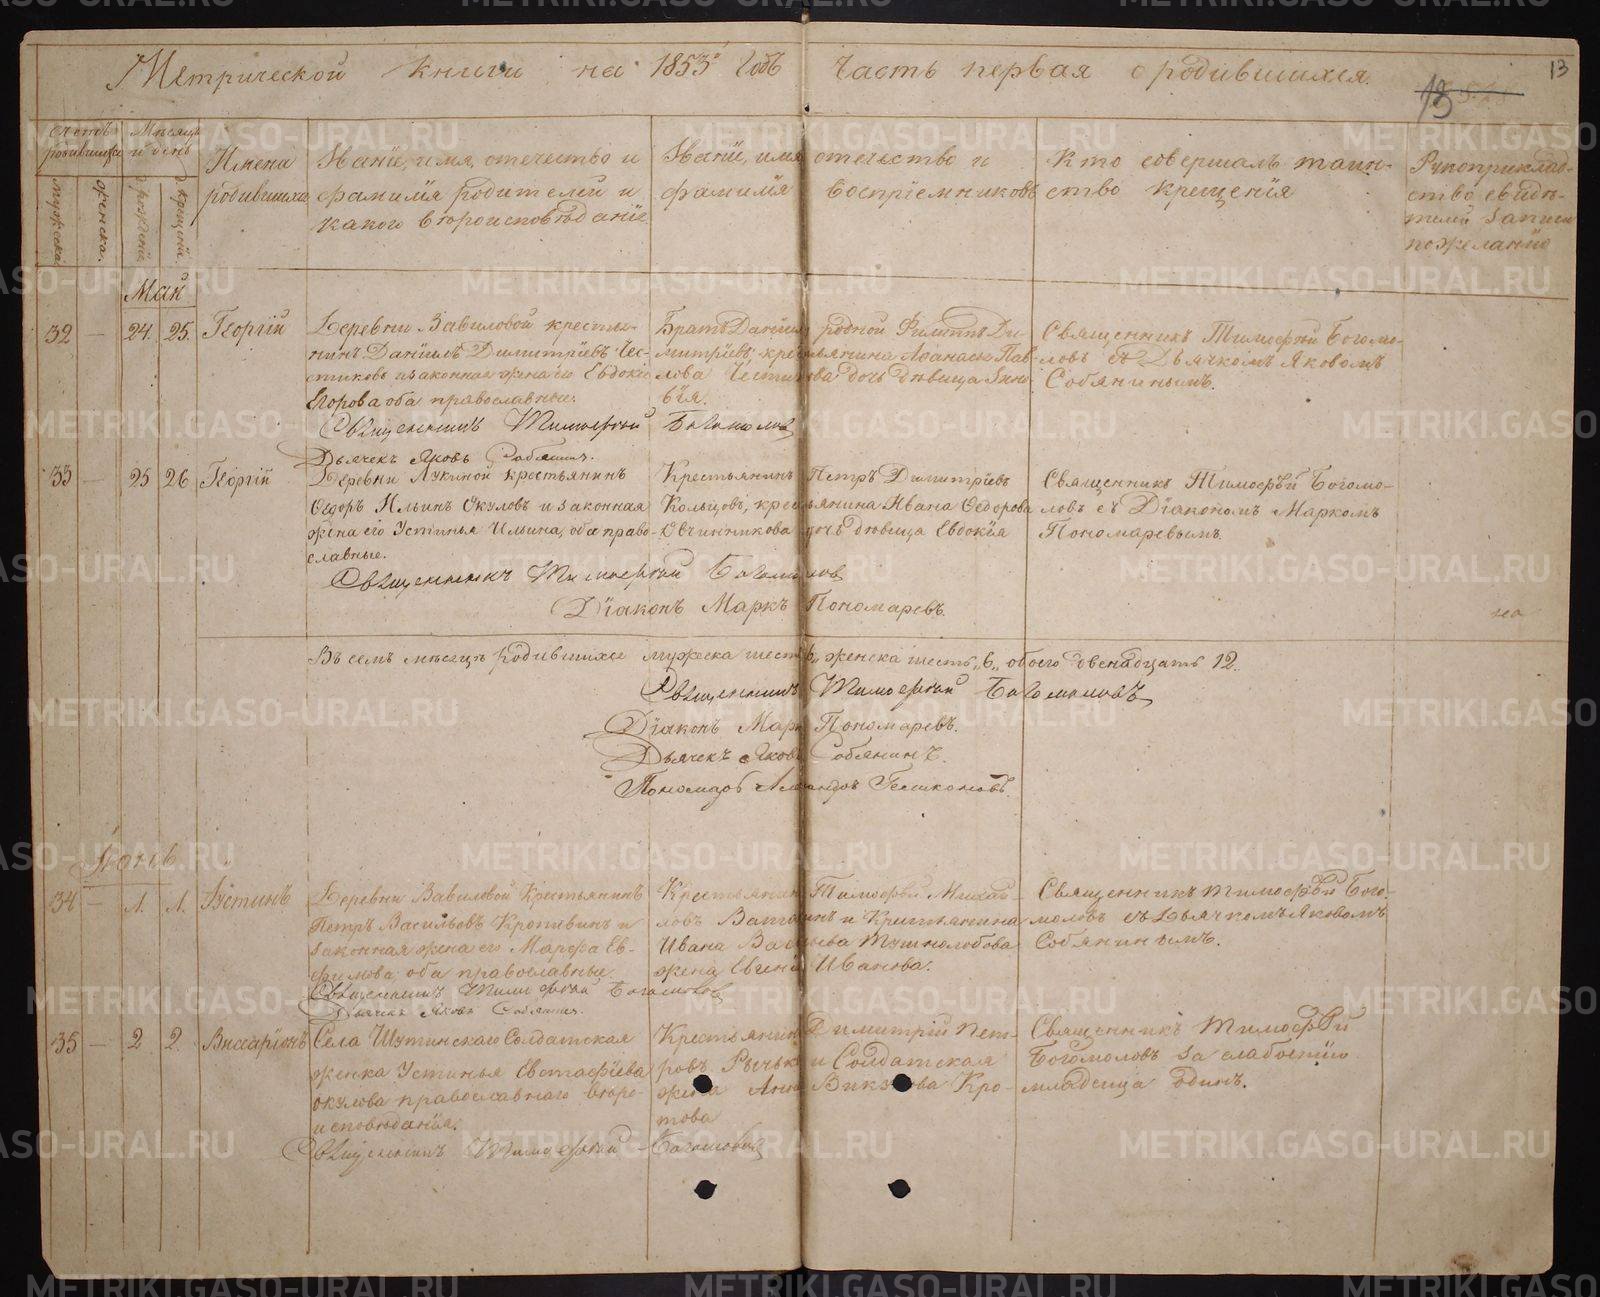 Метрической книги на 1853й Годъ Часть первая о родившихся.
13
13
Счетъ родившихся
мужеска
женска.
Мѣсяцъ и день
рожденія
крещенія.
Имена
родившихся
Званіе, имя, отечество и
фамилія родителей и
какого вѣроисповѣданія.
Званіе, имя отечество и
фамилія Воспріемниковъ
Кто совершалъ таин-
ство крещенія
Рукоприклад-
ство свидѣ-
телей записи
по желанію
Май
32 — 24. 25. Георгій
Деревни Вавиловой крестья-
нинъ Даніилъ Димитріевъ Чес-
тиковъ и законная жена его Евдокія
Егорова оба православные.
Братъ Даніила родной Филиппъ Ди-
митріевъ, крестьянина Аѳанасія Пав-
лова Честикова дочь дѣвица Зино-
вія.
Священникъ Тимоѳей Богомо-
ловъ съ Дьячкомъ Яковомъ
Собянинымъ.
Священникъ Тимоѳей Богомоловъ
Дьячекъ Яковъ Собянинъ.
33 — 25 26 Георгій
Деревни Лукиной крестьянинъ
Ѳедоръ Ильинъ Окуловъ и законная
жена его Устинья Ильина, оба право-
славные.
Крестьянинъ Петръ Димитріевъ
Кольцовъ, крестьянина Ивана Ѳедорова
Овчинникова дочь дѣвица Евдокія
Священникъ Тимоѳей Богомо-
ловъ съ Діакономъ Маркомъ
Пономаревымъ.
Священникъ Тимоѳей Богомоловъ
Діаконъ Маркъ Пономаревъ.
Въ семъ мѣсяцѣ родившихся мужеска шесть 6„ женска шесть „6„ обоего двенадцать 12.
Священникъ Тимоѳей Богомоловъ
Діаконъ Маркъ Пономаревъ.
Дьячекъ Яковъ Собянинъ.
Пономарь
Іюнь
34 — 1. 1. Іустинъ
Деревни Вавиловой Крестьянинъ
Петръ Васильевъ Кропивинъ и
законная жена его Марфа Ев-
фимова, оба православные.
Крестьянинъ Тимоѳей Михай-
ловъ и Крестьянина
Ивана Васильева
жена Евгенія Иванова.
Священникъ Тимоѳей Бого-
моловъ съ Дьячкомъ Яковомъ
Собянинымъ.
Священникъ Тимоѳей Богомоловъ
Дьячекъ Яковъ Собянинъ.
35 — 2 2. Виссаріонъ
Села Шутинскаго Солдатская
женка Устинья Евстафіева
Окулова православнаго вѣро-
исповѣданія.
Крестьянинъ Димитрій Пет-
ровъ и Солдатская
жена Анна Кро-
това
Священникъ Тимоѳей
Богомоловъ за слабостію
младенца одинъ.
Священникъ Тимоѳей Богомоловъ
METRIKI.GASO-URAL.RU